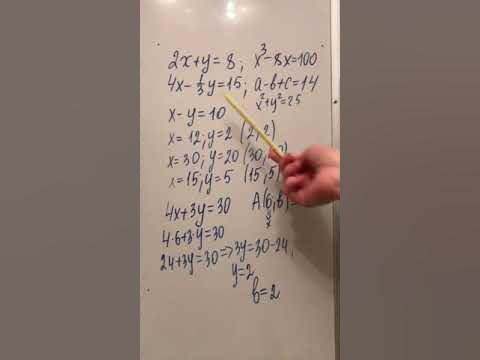 2x+y=8; x³-8x=100
4x-⅓y=15; a-b+c=14
x²+y²=25
x-y=10
x=12; y=2 (2;2)
x=30; y=20 (30;
x=15; y=5 (15;5)
4x+3y=30 A(6;b)
x
4·6+3·y=30
24+3y=30 => 3y=30-24
y=2
b=2